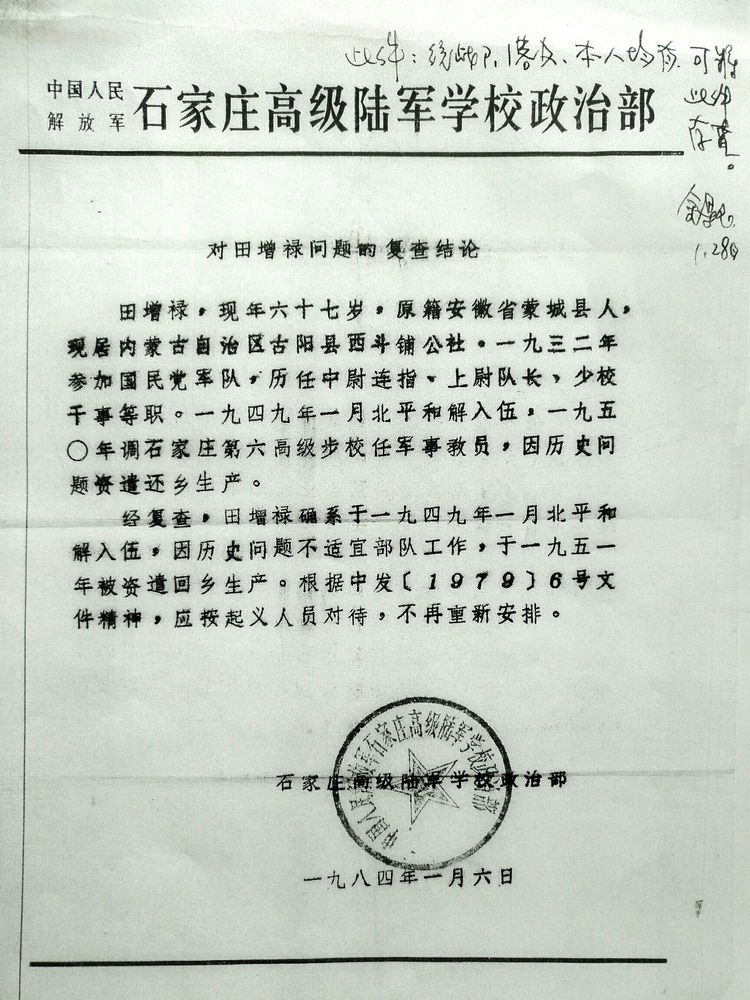 此件：统战部、落办、本人均有，可将
此件
存查。
1.28日
中国人民
解放军
石家庄高级陆军学校政治部
对田增禄问题的复查结论
田增禄，现年六十七岁，原籍安徽省蒙城县人，
现居内蒙古自治区古阳县西斗铺公社。一九三二年
参加国民党军队，历任中尉连指、上尉队长、少校
干事等职。一九四九年一月北平和解入伍，一九五
〇年调石家庄第六高级步校任军事教员，因历史问
题资遣还乡生产。
经复查，田增禄确系于一九四九年一月北平和
解入伍，因历史问题不适宜部队工作，于一九五一
年被资遣回乡生产。根据中发〔1979〕6号文
件精神，应按起义人员对待，不再重新安排。
石家庄高级陆军学校政治部
中国人民解放军石家庄高级陆军学校政治部
一九八四年一月六日